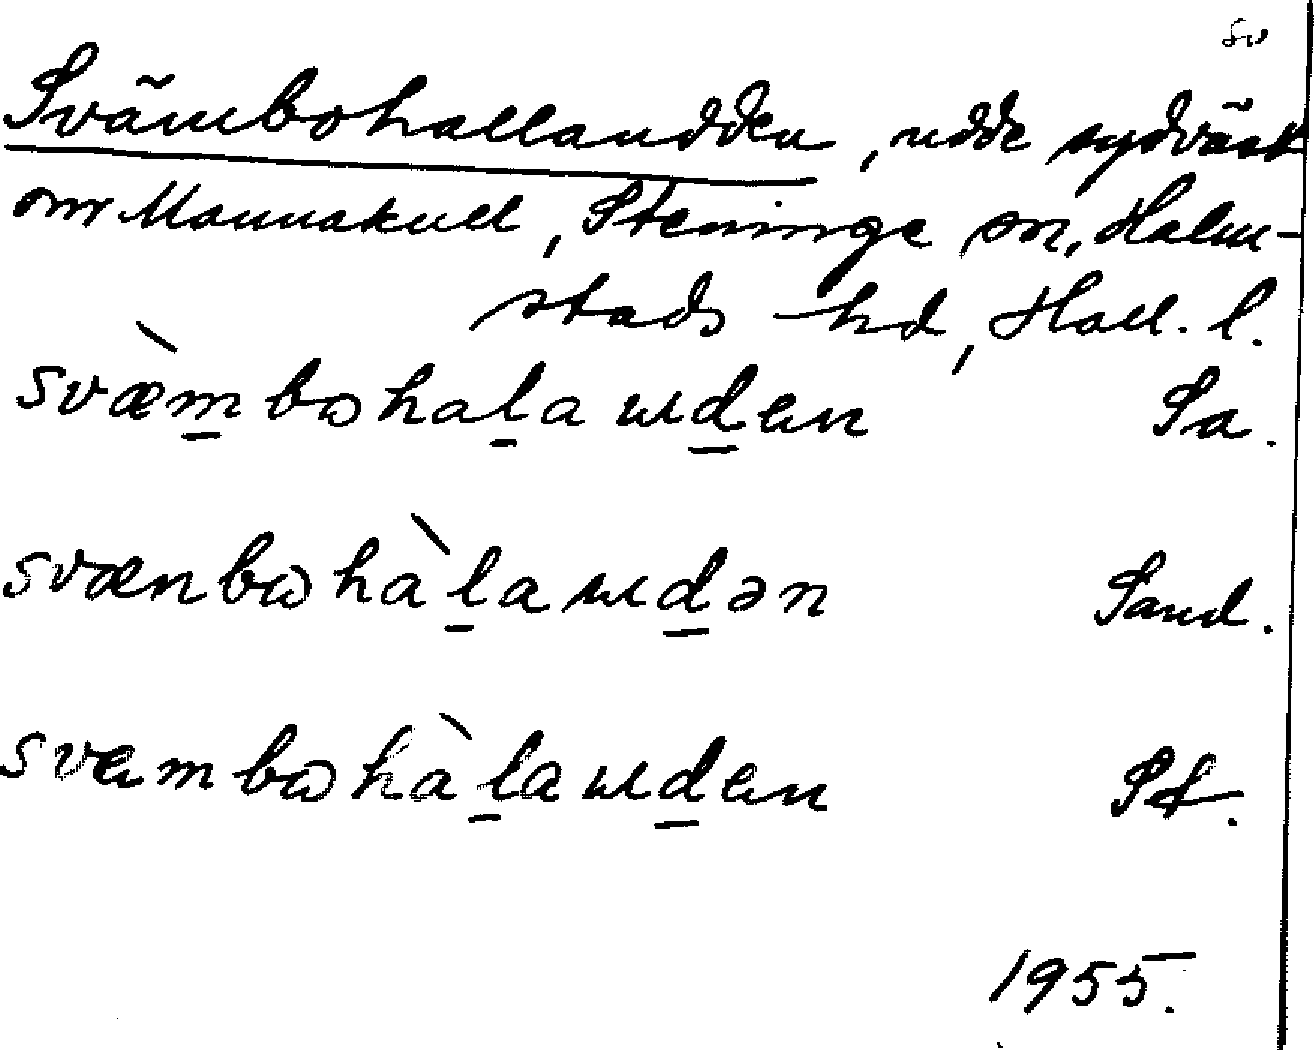 sv
Svämbohallaudden, udde sydväst
om Mannakull, Steninge sn, Halm-
stads hd, Hall. l.
svæ̀m̲bɷhal̲a ɯd̲en Sa.
svænbɷhàl̲a ɯd̲ən Sand.
svembɷhàl̲a ɯd̲en Sf.
1955.